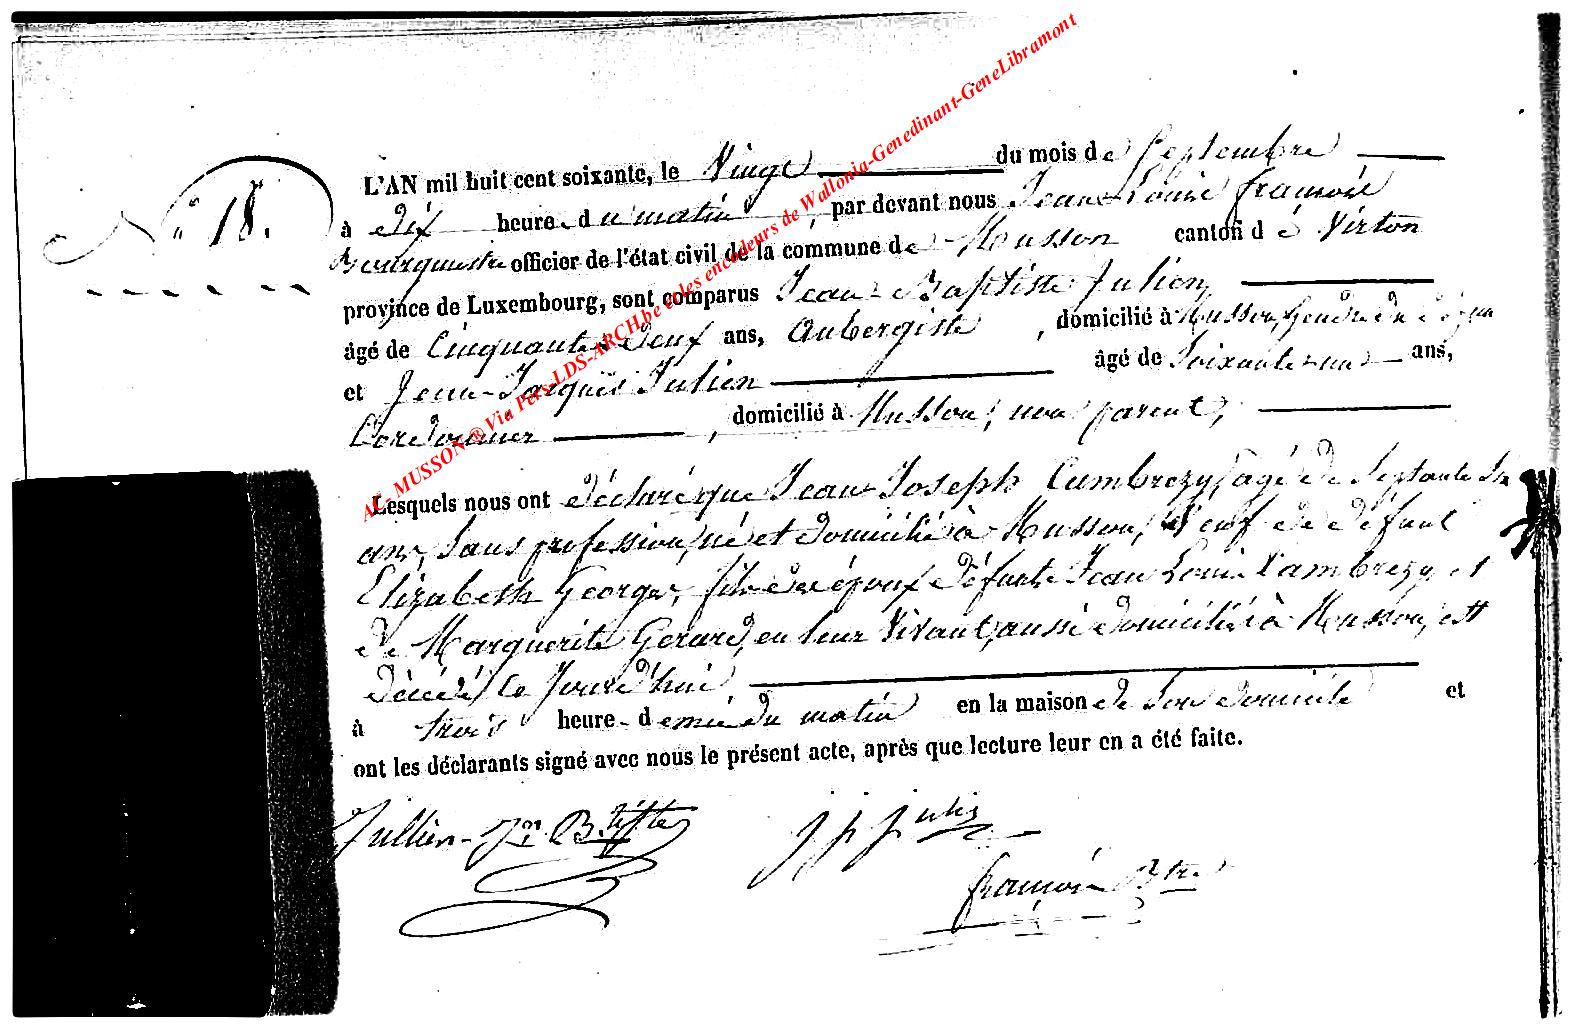 N° 18.
L'AN mil huit cent soixante, le Vingt du mois de Septembre
à dix heure du matin, par devant nous Jean Louis François
Bourguignon officier de l'état civil de la commune de Musson canton dé Virton
province de Luxembourg, sont comparus Jean-Baptiste Julien,
âgé de Cinquante-neuf ans, Aubergiste, domicilié à Musson, Gendre du
et Jean-Jacques Julien âgé de Soixante-un ans,
Cordonnier, domicilié à Musson, non parent,
Lesquels nous ont déclaré que Jean-Joseph Cambrezy, agé de Septante
ans, sans profession, né et domicilié à Musson, Veuf de défunt
Elizabeth George, fils des époux défunts Jean Louis Cambrezy et
de Marguerite Gerard, en leur Vivant, aussi domiciliés à Musson, est
décédé ce Jourd'hui
à trois heure demie du matin en la maison de son domicile et
ont les déclarants signé avec nous le présent acte, après que lecture leur en a été faite.
Jullien-Jn Btiste
jj julien
françois Btre
AC- MUSSON ® Via Pers-LDS-ARCH.be & les encodeurs de Wallonia-Genedinant-GeneLibramont